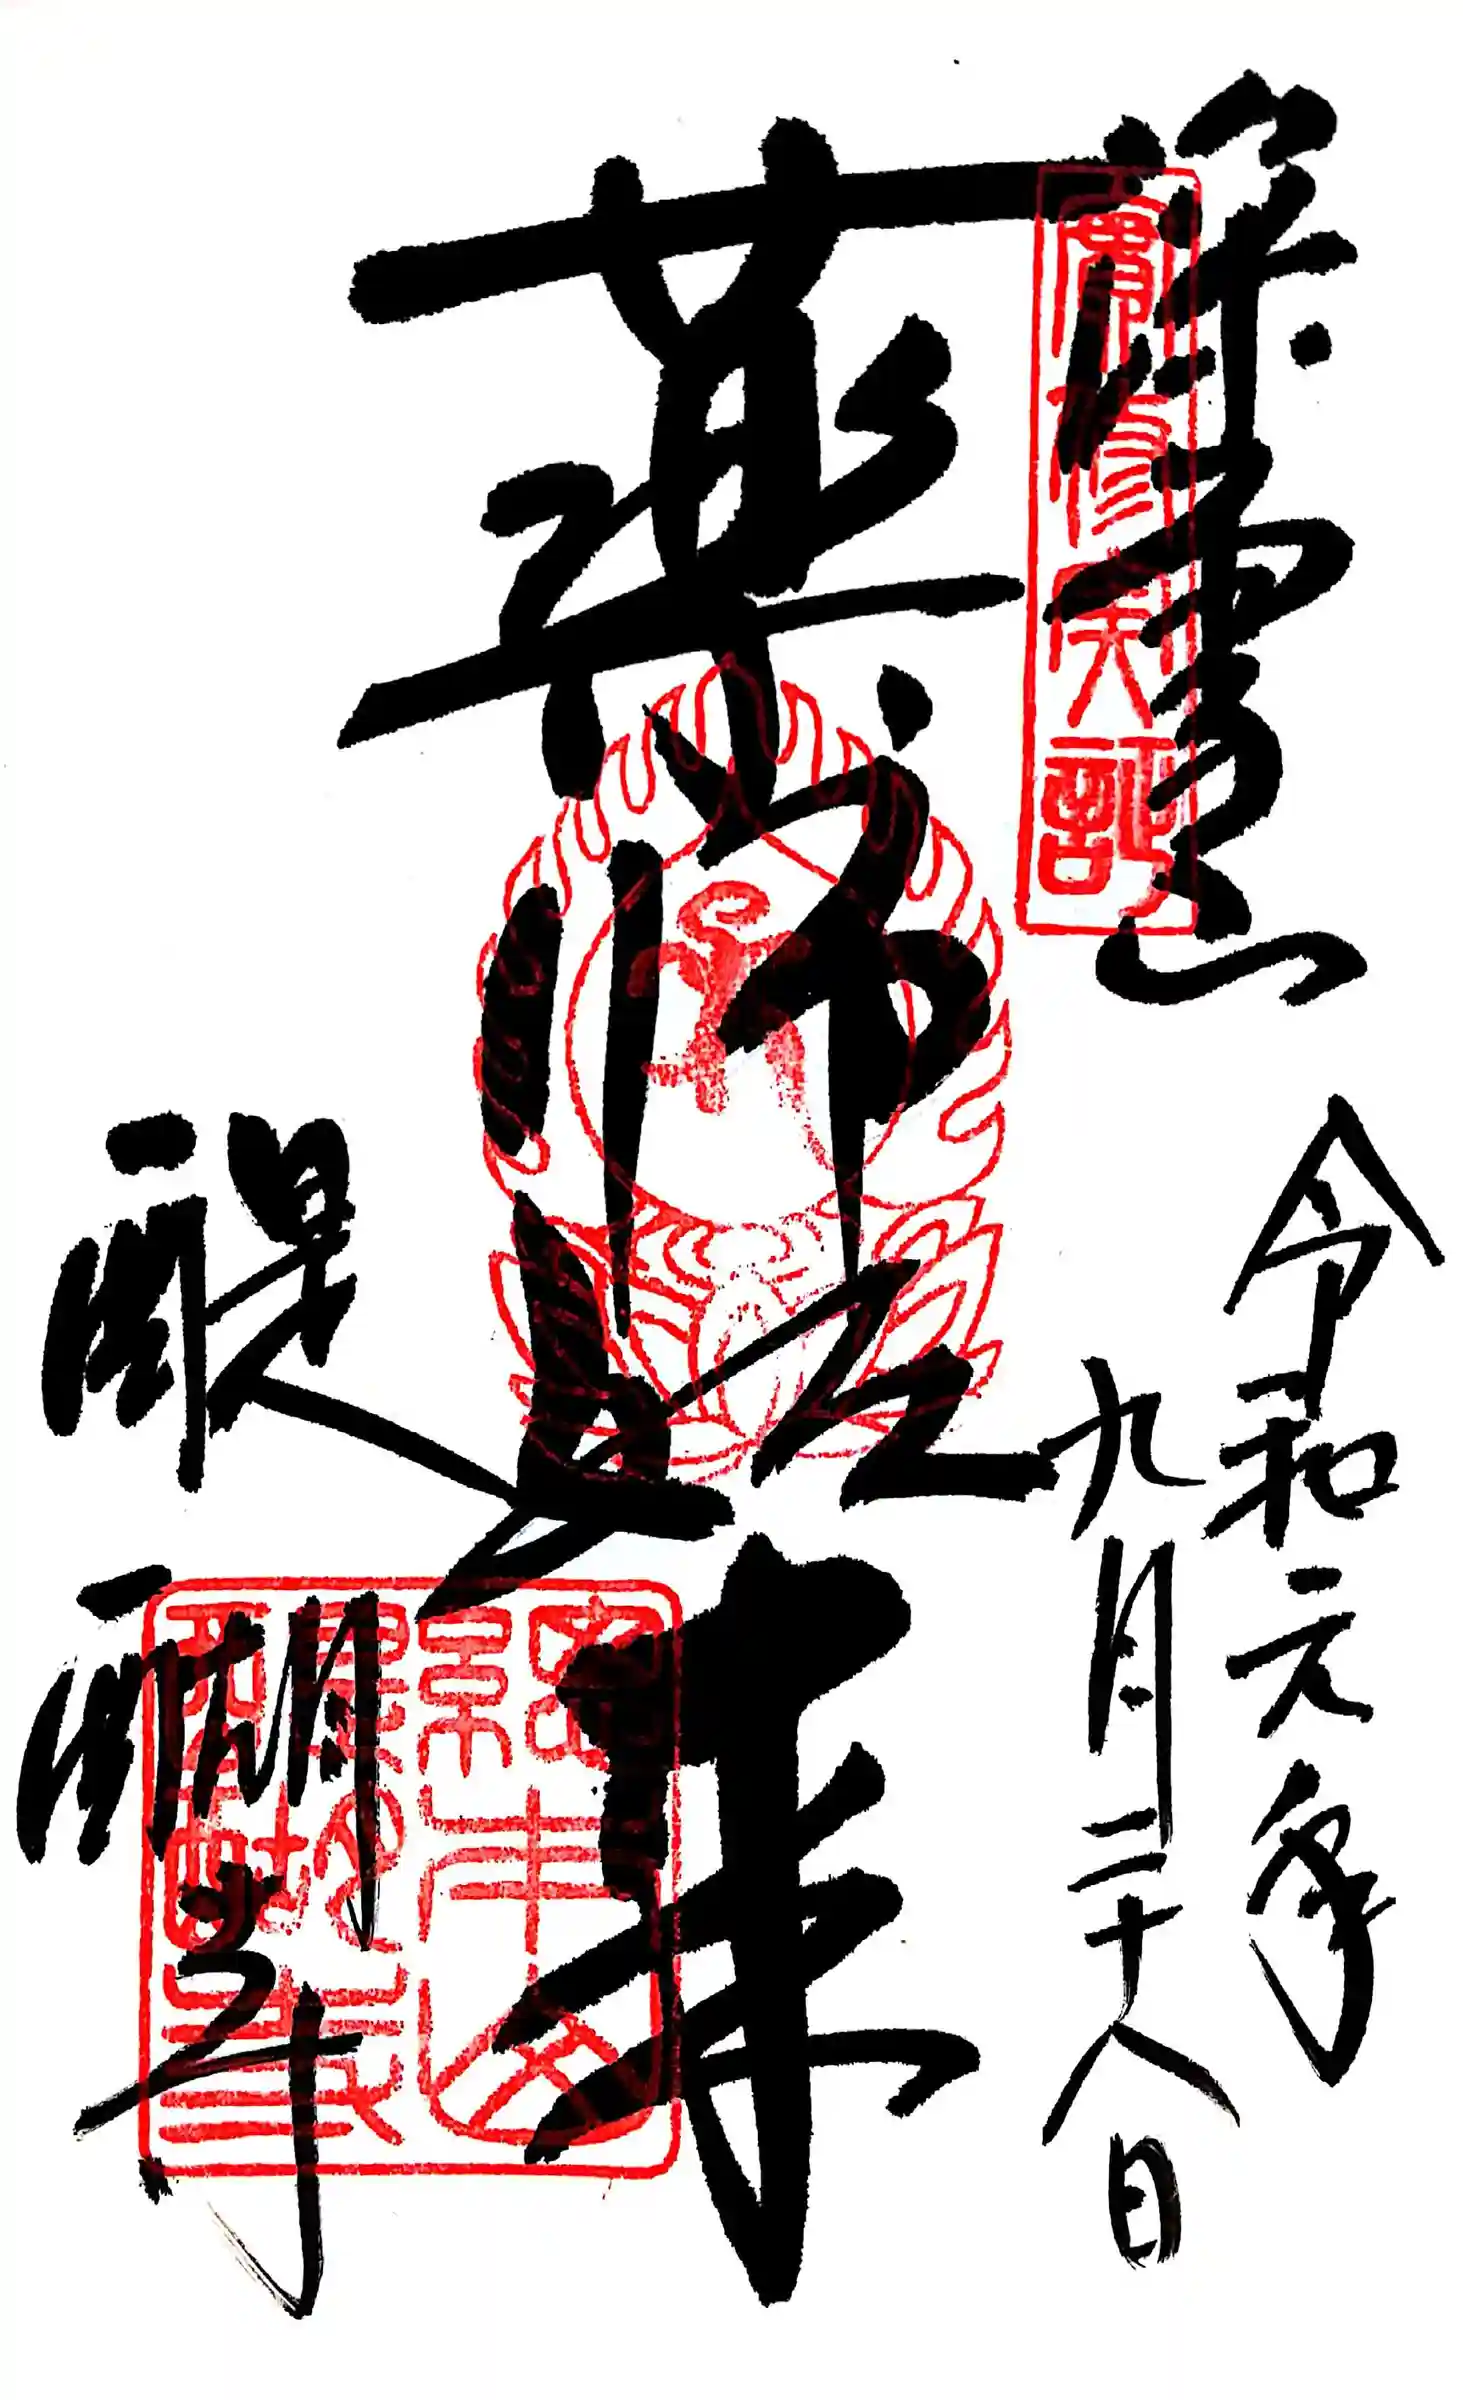 深雪山
薬師如来
醍醐寺
令和元年
九月二十八日